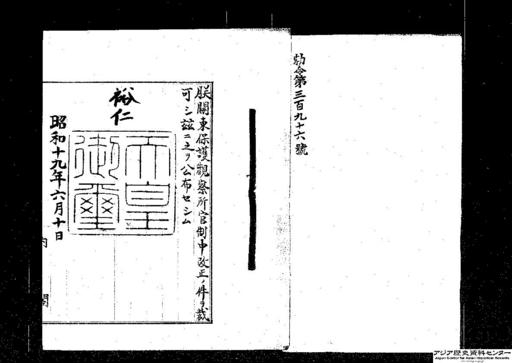 勅令第三百九十六號
朕關東保護觀察所官制中改正ノ件ヲ裁
可シ茲ニ之ヲ公布セシム
裕仁
天皇
御璽
昭和十九年六月十日
内閣
アジア歴史資料センター
Japan Center for Asian Historical Records